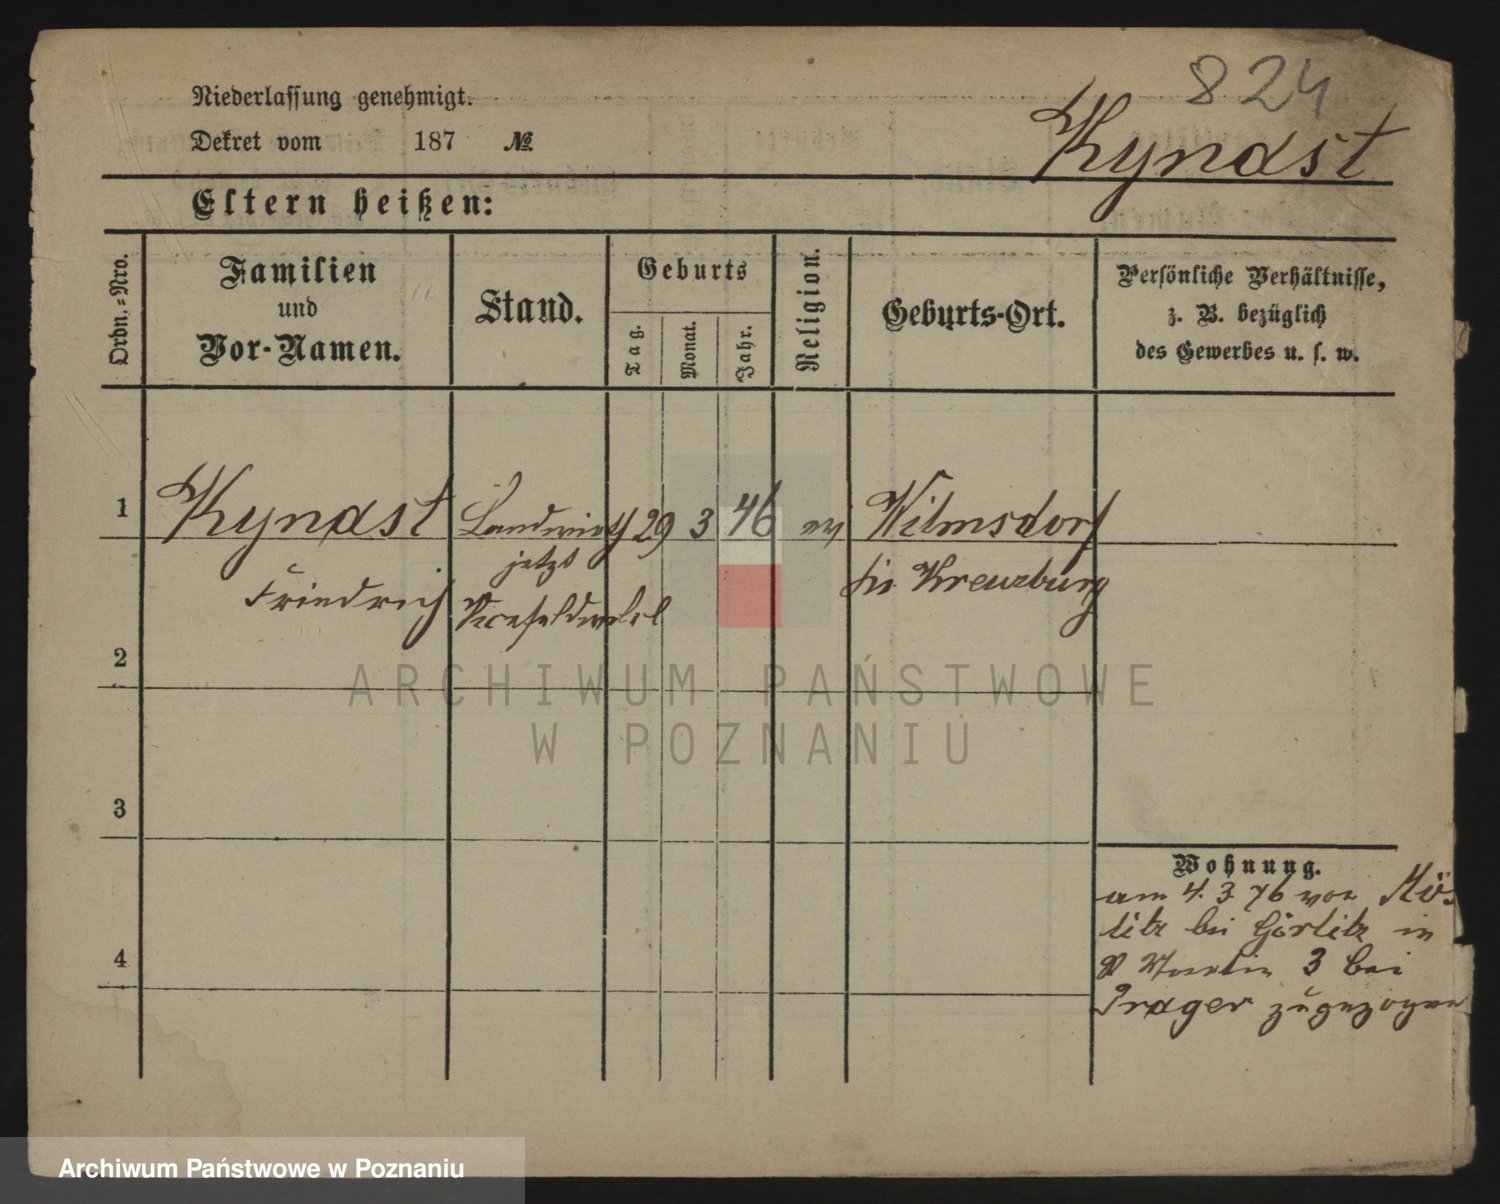 824
Niederlassung genehmigt.
Dekret vom 187 №
Kyndst
Eltern heißen:
Ordn.-Nro.
Familien
und
Vor-Namen.
Stand.
Geburts
Tag.
Monat.
Jahr.
Religion.
Geburts-Ort.
Persönliche Verhältnisse,
z. B. bezüglich
des Gewerbes u. s. w.
1 Kyndst Landwirth 29 3 46 ev Wilmsdorf
jetzt
Friedrich Vicefeldwebel
Kreuzburg
2
3
4
Wohnung.
am 4. 3 76 von
bei Görlitz in
3 bei
Prager zugezogen
ARCHIWUM PAŃSTWOWE
W POZNANIU
Archiwum Państwowe w Poznaniu